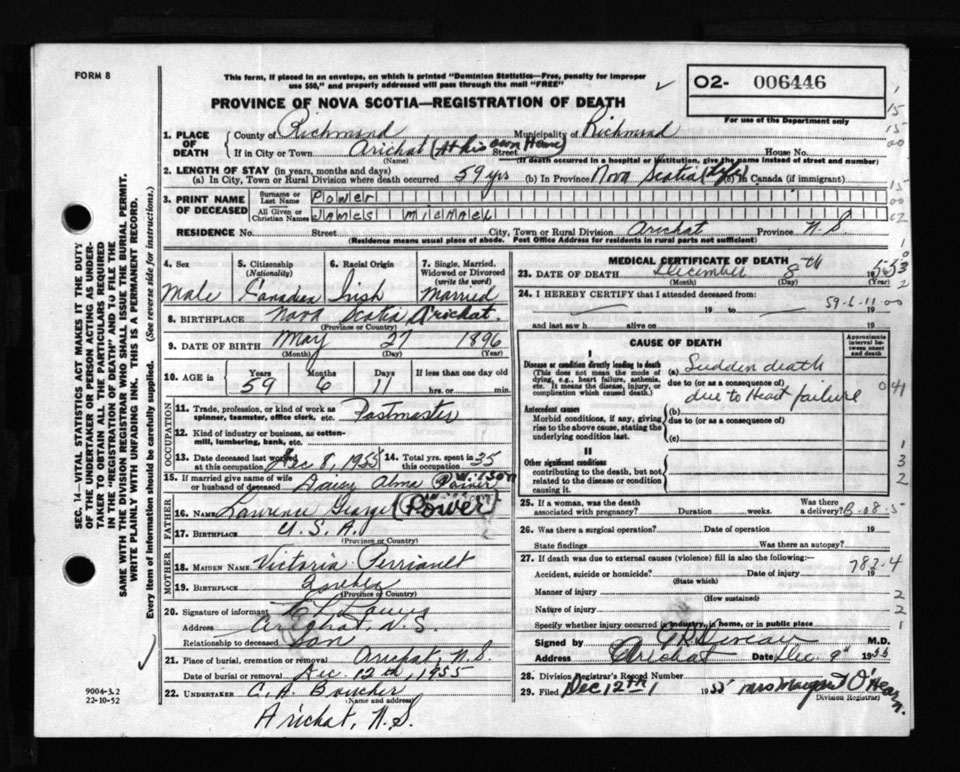 FORM 8
This form, if placed in an envelope, on which is printed "Dominion Statistics—Free, penalty for improper
use $50," and properly addressed will pass through the mail "FREE"
O2- 006446
For use of the Department only
PROVINCE OF NOVA SCOTIA—REGISTRATION OF DEATH
1. PLACE OF DEATH { County of Richmond Municipality of Richmond
If in City or Town Arichat (At his own Home) Street House No.
(Name) (If death occurred in a hospital or institution, give the name instead of street and number)
2. LENGTH OF STAY (in years, months and days)
(a) In City, Town or Rural Division where death occurred 59 yrs (b) In Province Nova Scotia (Life) (c) In Canada (if immigrant)
3. PRINT NAME OF DECEASED { Surname or Last Name Power
All Given or Christian Names James Michael
RESIDENCE No. Street City, Town or Rural Division Arichat Province N.S.
(Residence means usual place of abode. Post Office Address for residents in rural parts not sufficient)
4. Sex Male
5. Citizenship (Nationality) Canadian
6. Racial Origin Irish
7. Single, Married, Widowed or Divorced (write the word) Married
8. BIRTHPLACE Nova Scotia Arichat.
(Province or Country)
9. DATE OF BIRTH May 27 1896
(Month) (Day) (Year)
10. AGE in { Years 59 Months 6 Days 11 If less than one day
hrs. or min.
OCCUPATION
11. Trade, profession, or kind of work as spinner, teamster, office clerk, etc. Postmaster
12. Kind of industry or business, as cotton-mill, lumbering, bank, etc.
13. Date deceased last worked at this occupation Dec 8, 1955 14. Total yrs. spent in this occupation 35
15. If married give name of wife or husband of deceased Alma
FATHER
16. NAME Lawrence George (Power)
17. BIRTHPLACE U.S.A.
(Province or Country)
MOTHER
18. MAIDEN NAME Victoria
19. BIRTHPLACE Quebec
(Province or Country)
20. Signature of informant
Address Arichat, N.S.
Relationship to deceased Son
21. Place of burial, cremation or removal Arichat, N.S.
Date of burial or removal Dec. 12th, 1955
22. UNDERTAKER C. A. Boucher
(Name and address)
Arichat, N.S.
MEDICAL CERTIFICATE OF DEATH
23. DATE OF DEATH December 8th 1955
(Month) (Day)
24. I HEREBY CERTIFY that I attended deceased from:
— 19 to — 19
59-6-11-00
and last saw h alive on 19
CAUSE OF DEATH
Approximate interval between onset and death
I
Disease or condition directly leading to death
(This does not mean the mode of dying, e.g., heart failure, asthenia, etc. It means the disease, injury, or complication which caused death.)
(a) Sudden death
due to (or as a consequence of)
due to Heart failure
Antecedent causes
Morbid conditions, if any, giving rise to the above cause, stating the underlying condition last.
(b)
due to (or as a consequence of)
(c)
II
Other significant conditions
contributing to the death, but not related to the disease or condition causing it.
25. If a woman, was the death associated with pregnancy? Duration weeks. Was there a delivery?
26. Was there a surgical operation? Date of operation 19
State findings Was there an autopsy?
27. If death was due to external causes (violence) fill in also the following:—
782-4
Accident, suicide or homicide? Date of injury 19
(State which)
Manner of injury
(How sustained)
Nature of injury
Specify whether injury occurred in industry, in home, or in public place
Signed by M.D.
Address Arichat Date Dec. 9th 1955
28. Division Registrar's Record Number
29. Filed Dec 12th 1955 Mrs Margaret O'Hearn.
Division Registrar
SEC. 14—VITAL STATISTICS ACT MAKES IT THE DUTY
OF THE UNDERTAKER OR PERSON ACTING AS UNDERTAKER
TO OBTAIN ALL THE PARTICULARS REQUIRED
IN THE "REGISTRATION OF DEATH" AND TO FILE THE
SAME WITH THE DIVISION REGISTRAR WHO SHALL ISSUE THE BURIAL PERMIT.
WRITE PLAINLY WITH UNFADING INK. THIS IS A PERMANENT RECORD.
Every item of information should be carefully supplied. (See reverse side for instructions.)
9004-3.2
22-10-52